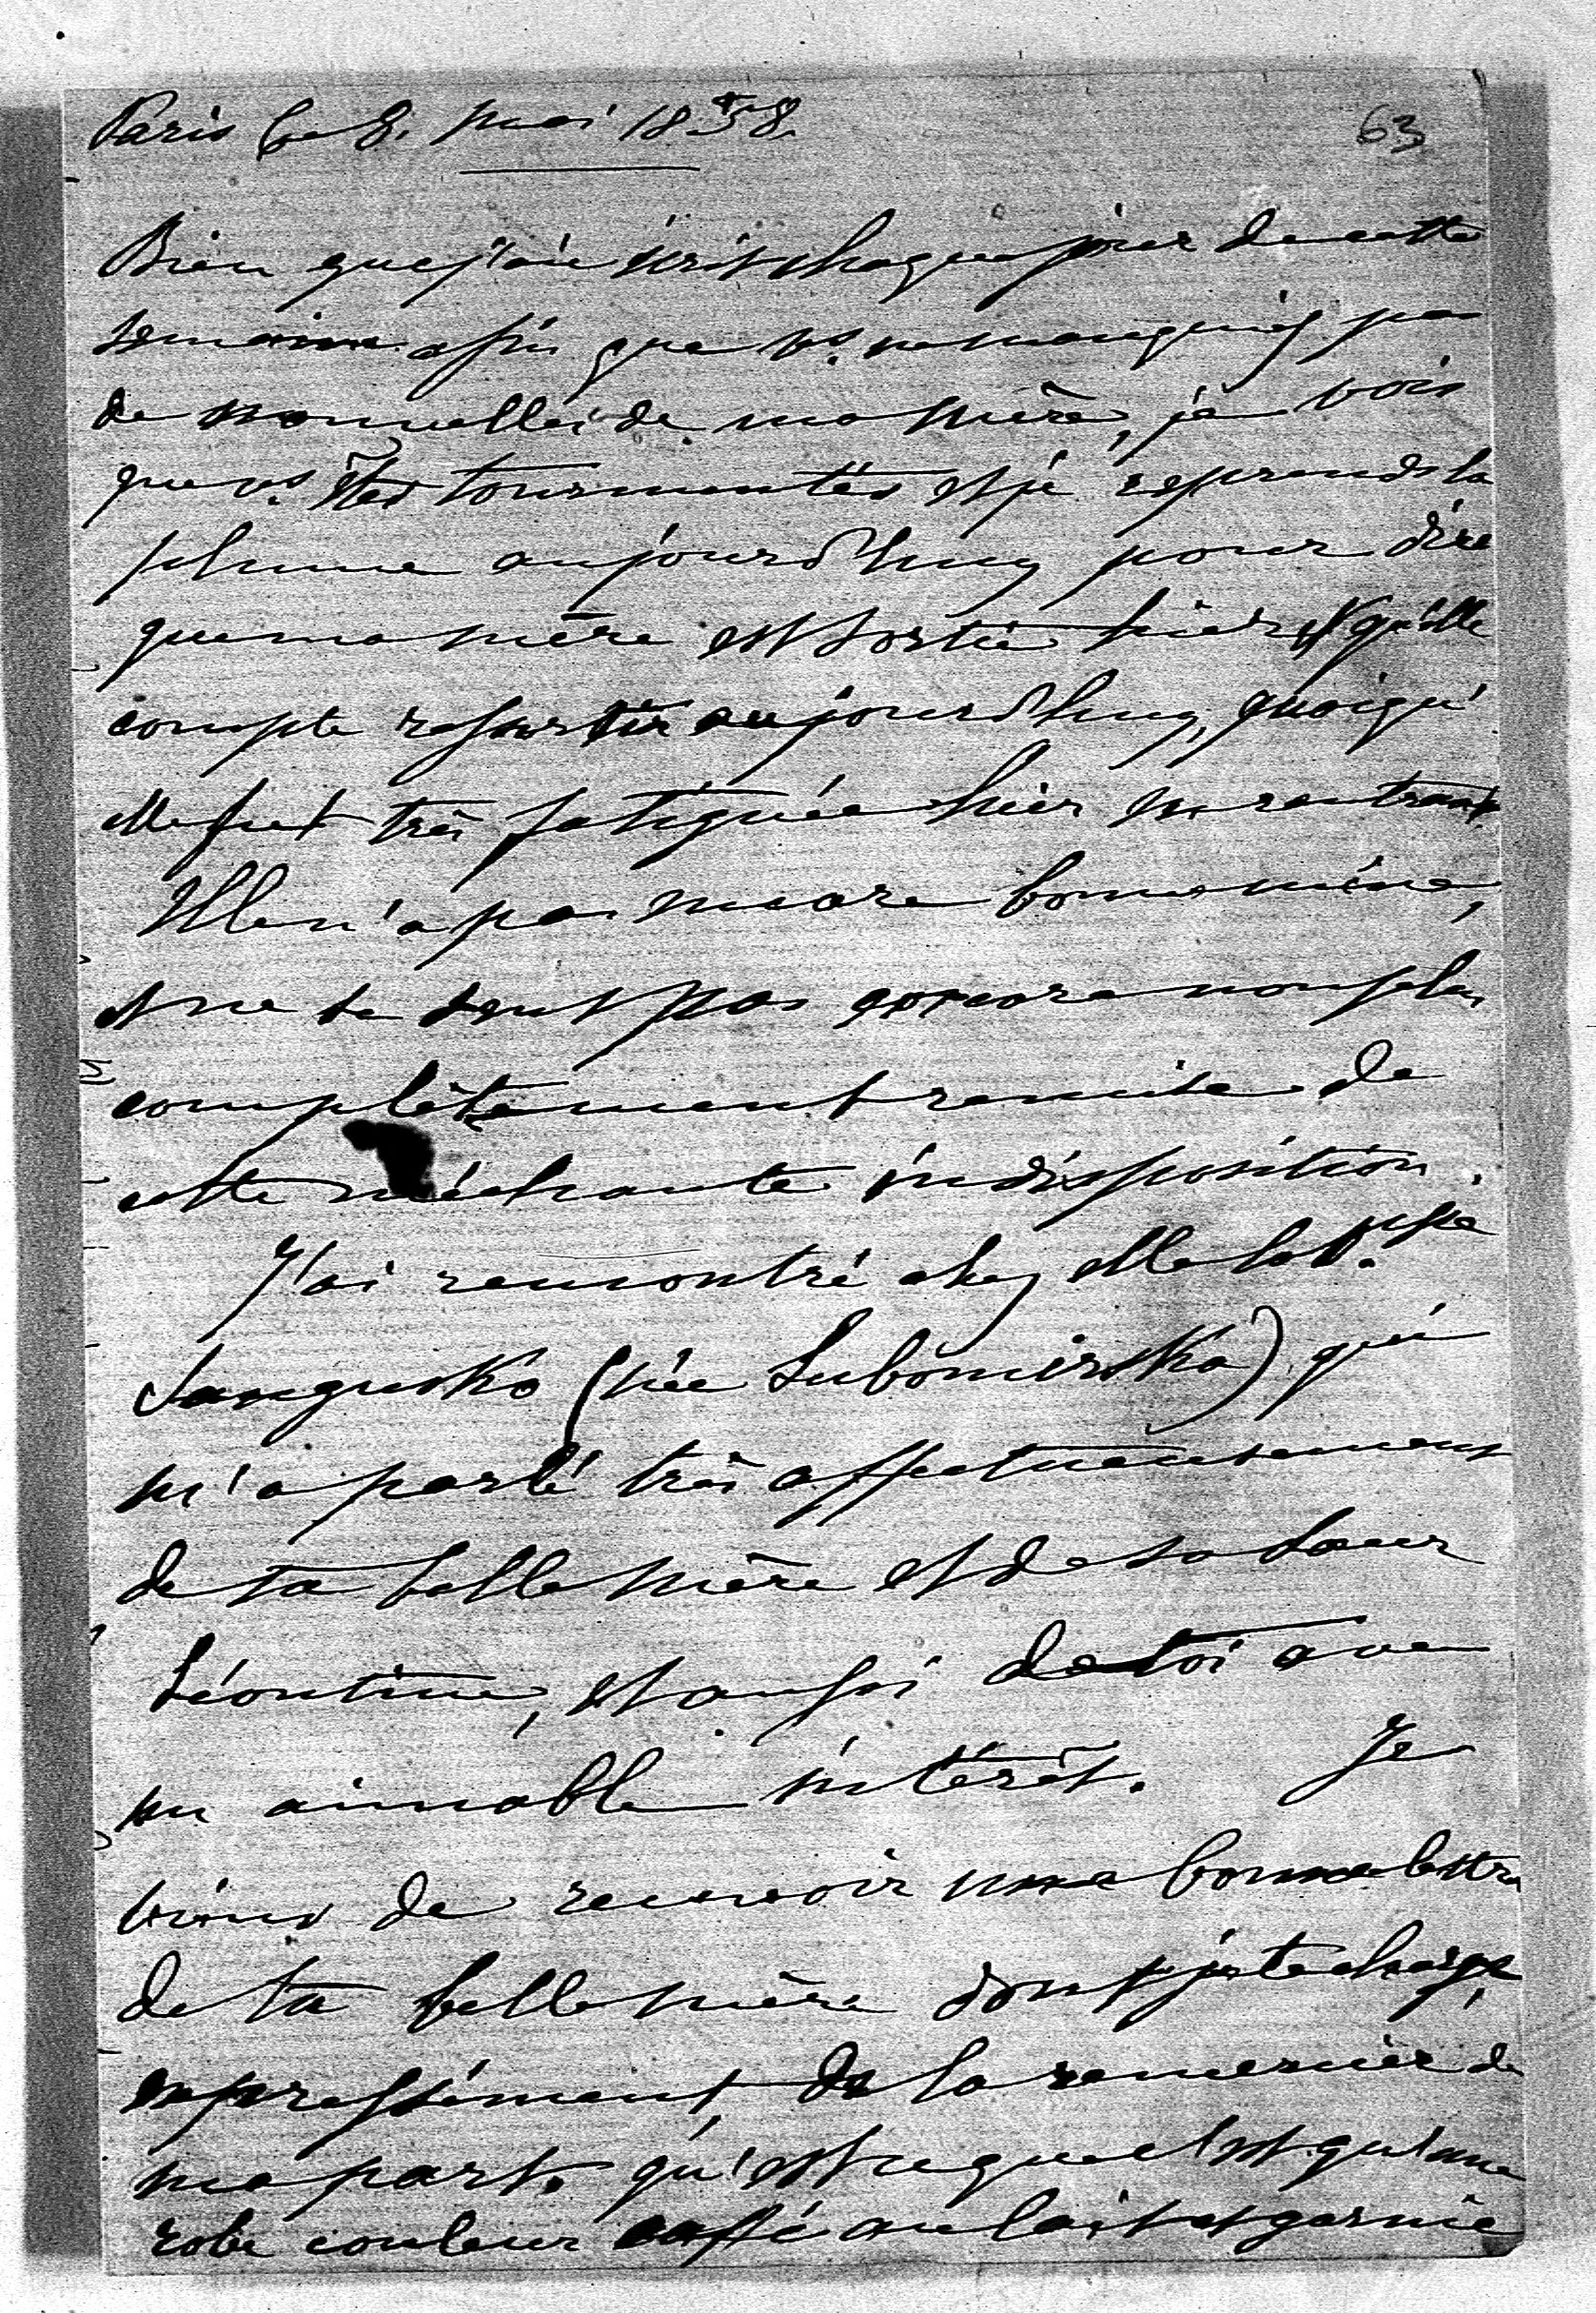 Paris le 8. mai 1858.
63
Bien que j'aie écrit chaque jour de cette
semaine afin que vs. ne manquiez pas
de nouvelles de ma mère, je vois
que vs. êtes tourmentés et je reprends la
plume aujourd'huy pour dire
que ma mère est sortie hier et qu'elle
compte ressortir aujourd'huy, quoiqu'
elle fut très fatiguée hier en rentrant
Elle n'a pas encore bonne mine,
et ne se sent pas encore non plus
complètement remise de
cette méchante indisposition.
J'ai rencontré chez elle la
Sangusko (née Lubomirska) qui
m'a parlé très affectueusement
de ta belle mère et de sa sœur
Léontine, et aussi de toi avec
un aimable intérêt. Je
viens de recevoir une bonne lettre
de ta belle mère dont je te charge
expressément de la remercier de
ma part. qu'est ce que c'est qu'une
robe couleur caffé au lait et garnie